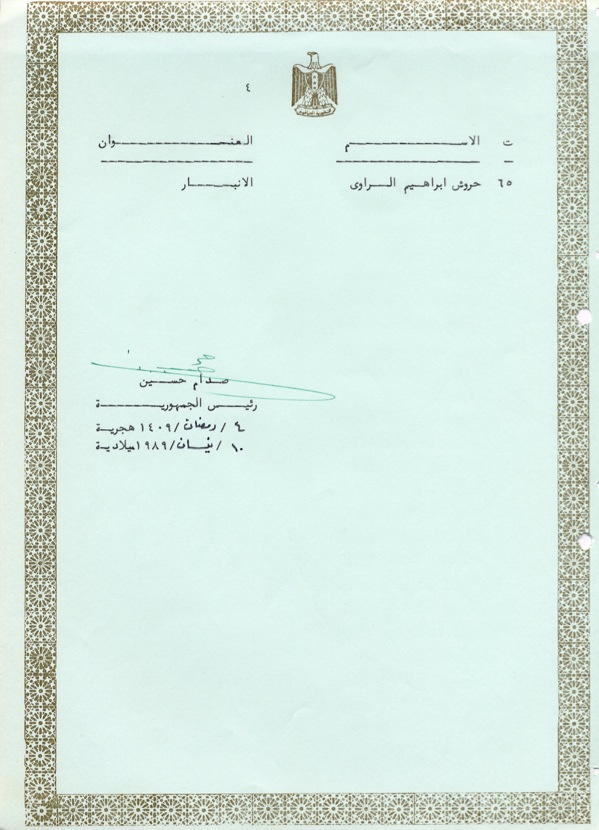 ٤
ت الاســــم العنـــوان
٦٥ حروش ابراهيم الـراوى الانبــار
صدام حسين
رئيس الجمهوريــة
٤ / رمضان / ١٤٠٩ هجرية
١٠ / نيسان / ١٩٨٩ ميلادية